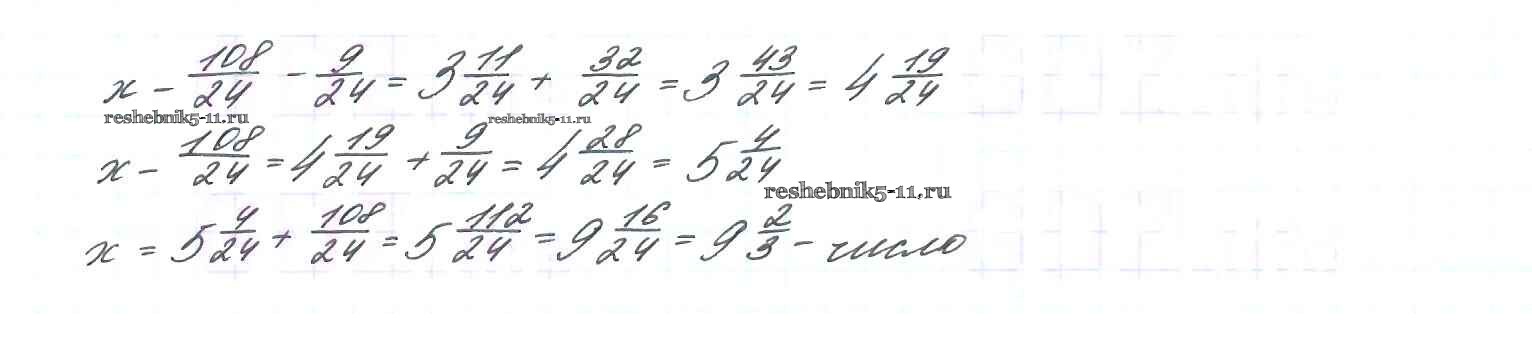 x - 108/24 - 9/24 = 3 11/24 + 32/24 = 3 43/24 = 4 19/24
reshebnik5-11.ru reshebnik5-11.ru
x - 108/24 = 4 19/24 + 9/24 = 4 28/24 = 5 4/24
reshebnik5-11.ru
x = 5 4/24 + 108/24 = 5 112/24 = 9 16/24 = 9 2/3 - число